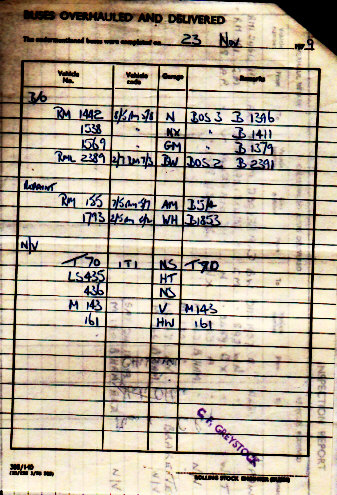 BUSES OVERHAULED AND DELIVERED
The undermentioned buses were completed on 23 Nov 1979
Vehicle No. Vehicle code Garage Remarks
B/O
RM 1442 8/5 RM 5/8 N BOS 3 B 1396
1538 " NX " B 1411
1569 " GM " B 1379
RML 2389 2/7 RM 7/3 BW BOS 2 B 2391
REPAINT
RM 155 AM
1793 WH B1853
N/V
T 70 1T1 NS T 70
LS 435 HT
436 NS
M 143 V M143
161 HW 161
C.F. GREYSTOCK
ROLLING STOCK ENGINEER (BUSES)
INSPECTION REPORT